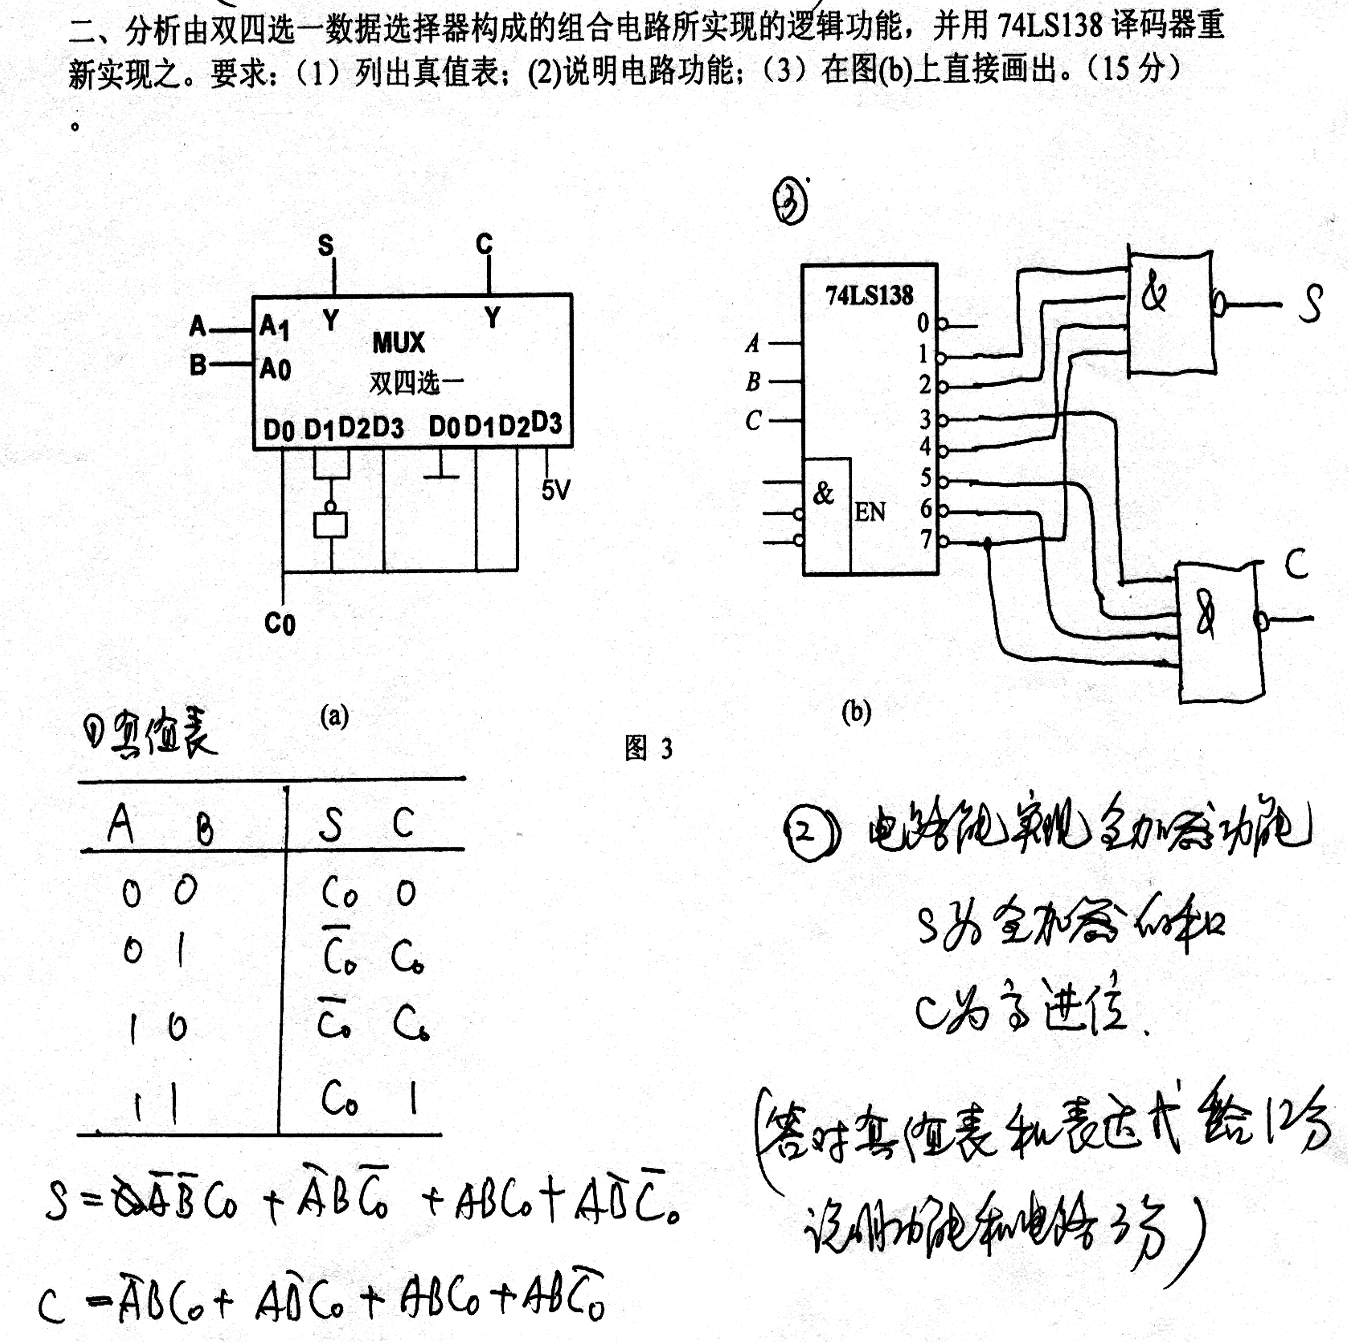 二、分析由双四选一数据选择器构成的组合电路所实现的逻辑功能，并用 74LS138 译码器重
新实现之。要求：（1）列出真值表；(2)说明电路功能；（3）在图(b)上直接画出。（15 分）
。
③
S C
A A1 Y MUX Y
B A0 双四选一
D0 D1 D2 D3 D0 D1 D2 D3
5V
C0
(a)
74LS138
A
B
C
& EN
0
1
2
3
4
5
6
7
& S
& C
(b)
图 3
① 真值表
A B S C
0 0 C₀ 0
0 1 C̅₀ C₀
1 0 C̅₀ C₀
1 1 C₀ 1
S = A̅B̅C₀ + A̅BC̅₀ + ABC₀ + AB̅C̅₀
C = A̅BC₀ + AB̅C₀ + ABC₀ + ABC̅₀
② 电路能实现全加器功能
S为全加器的和
C为高进位.
(答对真值表和表达式给12分
说明功能和电路3分)